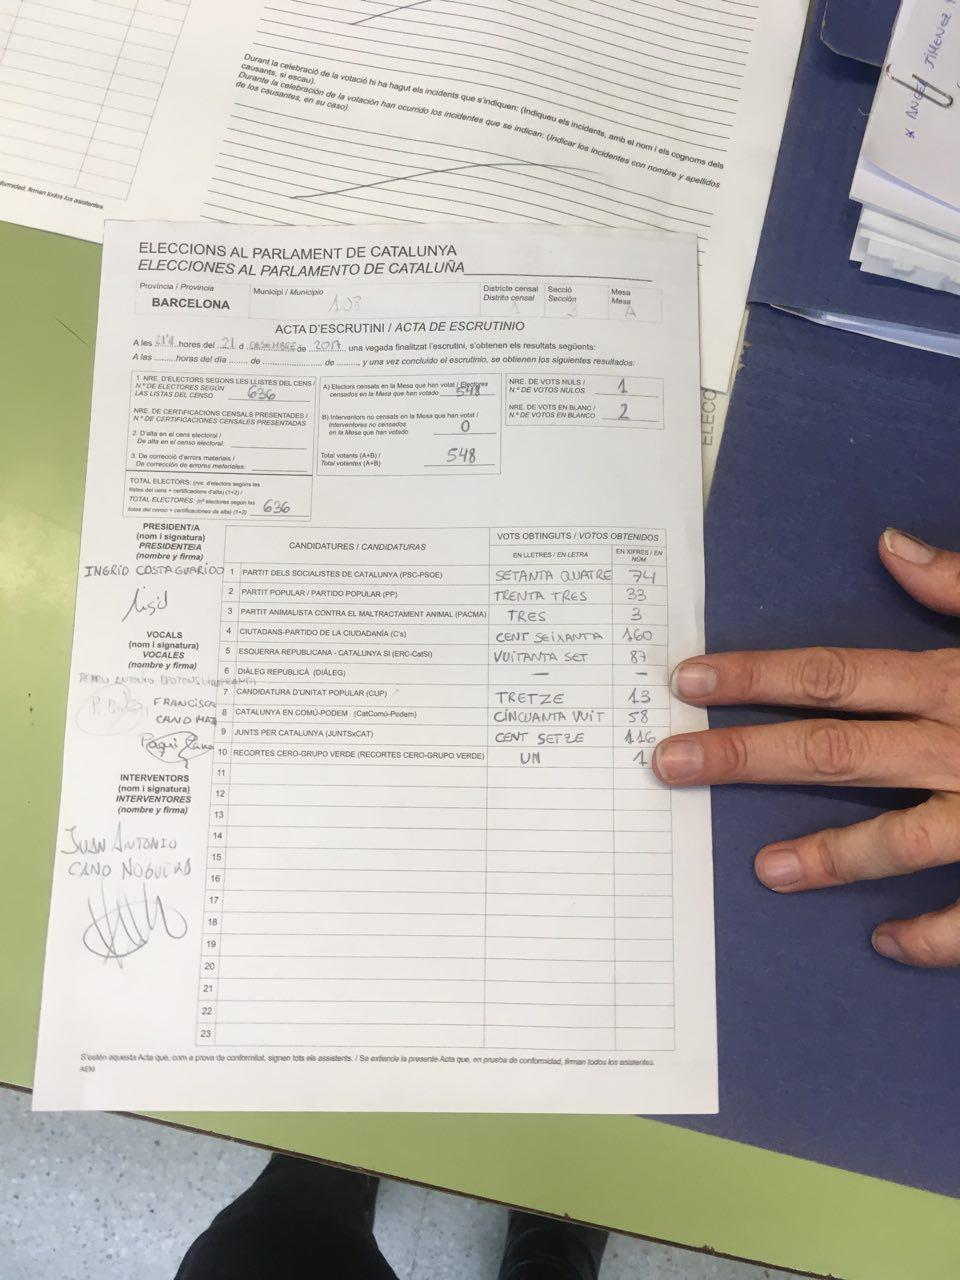 Durant la celebració de la votació hi ha hagut els incidents que s'indiquen: (Indiqueu els incidents, amb el nom i els cognoms dels
causants, si escau).
Durante la celebración de la votación han ocurrido los incidentes que se indican: (Indicar los incidentes con nombre y apellidos
de los causantes, en su caso).
firman todos los asistentes.
* ANGEL JIMENEZ
ELECC
ELECCIONS AL PARLAMENT DE CATALUNYA
ELECCIONES AL PARLAMENTO DE CATALUÑA
Província / Provincia
BARCELONA
Municipi / Municipio
108
Districte censal
Distrito censal
1
Secció
Sección
3
Mesa
Mesa
A
ACTA D'ESCRUTINI / ACTA DE ESCRUTINIO
A les hores del 21 d DESEMBRE de 2017, una vegada finalitzat l'escrutini, s'obtenen els resultats següents:
A las .........horas del día ....... de ........................ de ........, y una vez concluido el escrutinio, se obtienen los siguientes resultados:
1. NRE. D'ELECTORS SEGONS LES LLISTES DEL CENS /
N.º DE ELECTORES SEGÚN
LAS LISTAS DEL CENSO 636
NRE. DE CERTIFICACIONS CENSALS PRESENTADES /
N.º CERTIFICACIONES CENSALES PRESENTADAS
2. D'alta en el cens electoral /
De alta en el censo electoral:
3. De correcció d'errors materials /
De corrección de errores materiales:
TOTAL ELECTORS: (nre. d'electors segons les
llistes del cens + certificacions d'alta) (1+2) /
TOTAL ELECTORES: (nº electores según las
listas del censo + certificaciones de alta) (1+2) 636
A) Electors censats en la Mesa que han votat / Electores
censados en la Mesa que han votado 548
B) Interventors no censats en la Mesa que han votat /
Interventores no censados
en la Mesa que han votado 0
Total votants (A+B) /
Total votantes (A+B) 548
NRE. DE VOTS NULS /
N.º DE VOTOS NULOS 1
NRE. DE VOTS EN BLANC /
N.º DE VOTOS EN BLANCO 2
PRESIDENT/A
(nom i signatura)
PRESIDENTE/A
(nombre y firma)
INGRID COSTA GUARIDO
VOCALS
(nom i signatura)
VOCALES
(nombre y firma)
FRANCISCA
CANO
INTERVENTORS
(nom i signatura)
INTERVENTORES
(nombre y firma)
JUAN ANTONIO
CANO NOGUERAS
CANDIDATURES / CANDIDATURAS
VOTS OBTINGUTS / VOTOS OBTENIDOS
EN LLETRES / EN LETRA
EN XIFRES / EN
NÚM.
1 PARTIT DELS SOCIALISTES DE CATALUNYA (PSC-PSOE) SETANTA QUATRE 74
2 PARTIT POPULAR / PARTIDO POPULAR (PP) TRENTA TRES 33
3 PARTIT ANIMALISTA CONTRA EL MALTRACTAMENT ANIMAL (PACMA) TRES 3
4 CIUTADANS-PARTIDO DE LA CIUDADANÍA (C's) CENT SEIXANTA 160
5 ESQUERRA REPUBLICANA - CATALUNYA SI (ERC-CatSí) VUITANTA SET 87
6 DIÀLEG REPUBLICÀ (DIÀLEG) — —
7 CANDIDATURA D'UNITAT POPULAR (CUP) TRETZE 13
8 CATALUNYA EN COMÚ-PODEM (CatComú-Podem) CINCUANTA VUIT 58
9 JUNTS PER CATALUNYA (JUNTSxCAT) CENT SETZE 116
10 RECORTES CERO-GRUPO VERDE (RECORTES CERO-GRUPO VERDE) UN 1
11
12
13
14
15
16
17
18
19
20
21
22
23
S'estén aquesta Acta que, com a prova de conformitat, signen tots els assistents. / Se extiende la presente Acta que, en prueba de conformidad, firman todos los asistentes.